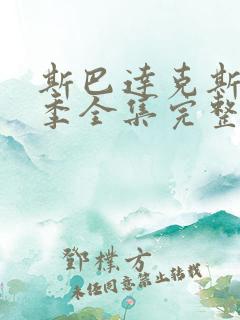 斯巴达克斯
季全集完整
鄧樸方
未经同意禁止转载